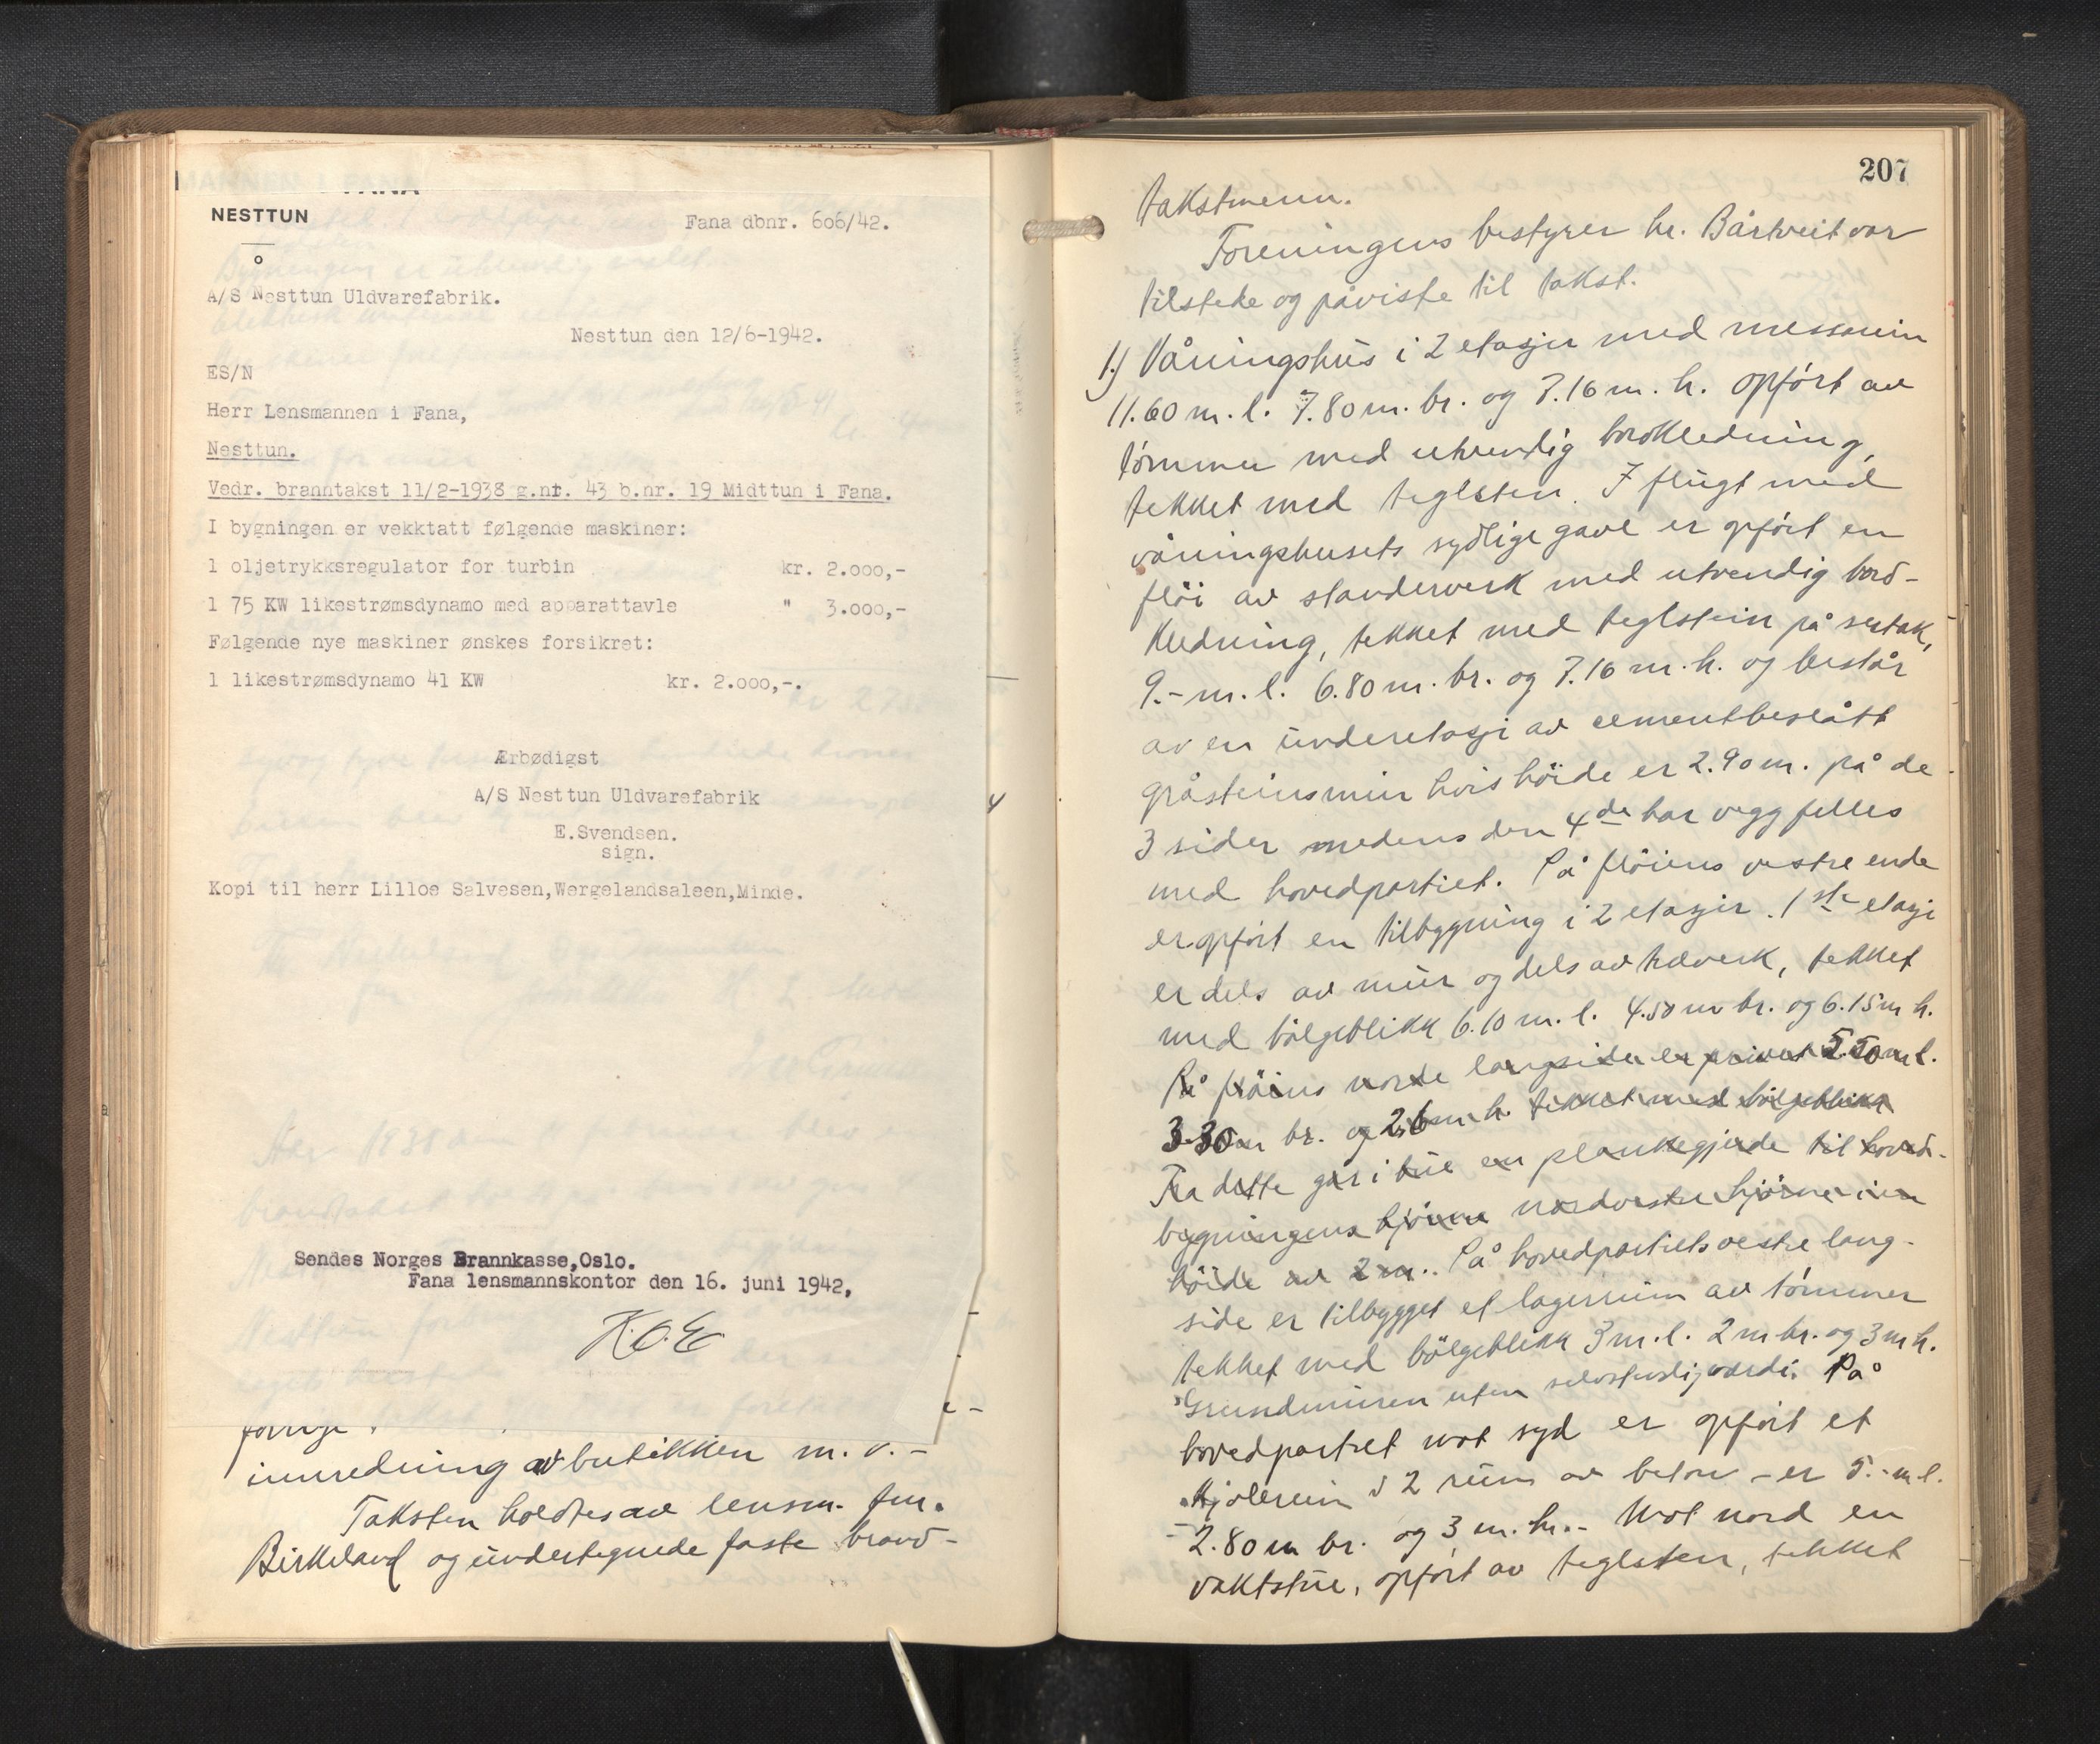 NESTTUN
Fana dbnr. 606/42.
A/S Nesttun Uldvarefabrik.
Nesttun den 12/6-1942.
ES/N
Herr Lensmannen i Fana,
Nesttun.
Vedr. branntakst 11/2-1938 g.nr. 43 b.nr. 19 Midttun i Fana.
I bygningen er vekktatt følgende maskiner:
1 oljetrykksregulator for turbin kr. 2.000,-
1 75 KW likestrømsdynamo med apparattavle " 3.000,-
Følgende nye maskiner ønskes forsikret:
1 likestrømsdynamo 41 KW kr. 2.000,-.
Ærbødigst
A/S Nesttun Uldvarefabrik
E.Svendsen.
sign.
Kopi til herr Lilloe Salvesen,Wergelandsaleen,Minde.
Sendes Norges Brannkasse,Oslo.
Fana lensmannskontor den 16. juni 1942,
innredning av butikken m. v. -
Taksten holdtes av lensm. fm.
Birkeland og undertegnede faste brand-
207
takstmenn.
Foreningens bestyrer hr. Bårtveit var
tilstede og påviste til takst.
1.) Våningshus i 2 etasjer med messanin
11.60 m. l. 7.80 m. br. og 7.16 m. h. opført av
tømmer med utvendig bordkledning,
tekket med teglsten. I flugt med
våningshusets sydlige gavl er opført en
fløi av standerverk med utvendig bord-
kledning, tekket med teglstein på sutak,
9.- m. l. 6.80 m. br. og 7.16 m. h. og består
av en underetasje av cementbeslått
gråsteinsmur hvis høide er 2.90 m. på de
3 sider medens den 4de har vegg felles
med hovedpartiet. På fløiens vestre ende
er opført en tilbygning i 2 etasjer. 1ste etasje
er dels av mur og dels av treverk, tekket
med bølgeblikk 6.10 m. l. 4.50 m br. og 6.15 m h.
På fløiens norde langside er privet 5.50 m l.
3.30 m br. og 2.6 m h. tekket med bølgeblikk
Fra dette går i tue en plankegjerde til hoved-
bygningens hjørne nordvestre hjørne i en
høide av 2 m.. På hovedpartiets vestre lang-
side er tilbygget et lagerrum av tømmer
tekket med bølgeblikk 3 m. l. 2 m br. og 3 m h.
Grundmuren uten selvstendig værdi. På
hovedpartiet mot syd er opført et
kjølerum i 2 rum av beton - er 5.- m. l.
2.80 m br. og 3 m. h. - Mot nord en
vaktstue, opført av teglsten, tekket